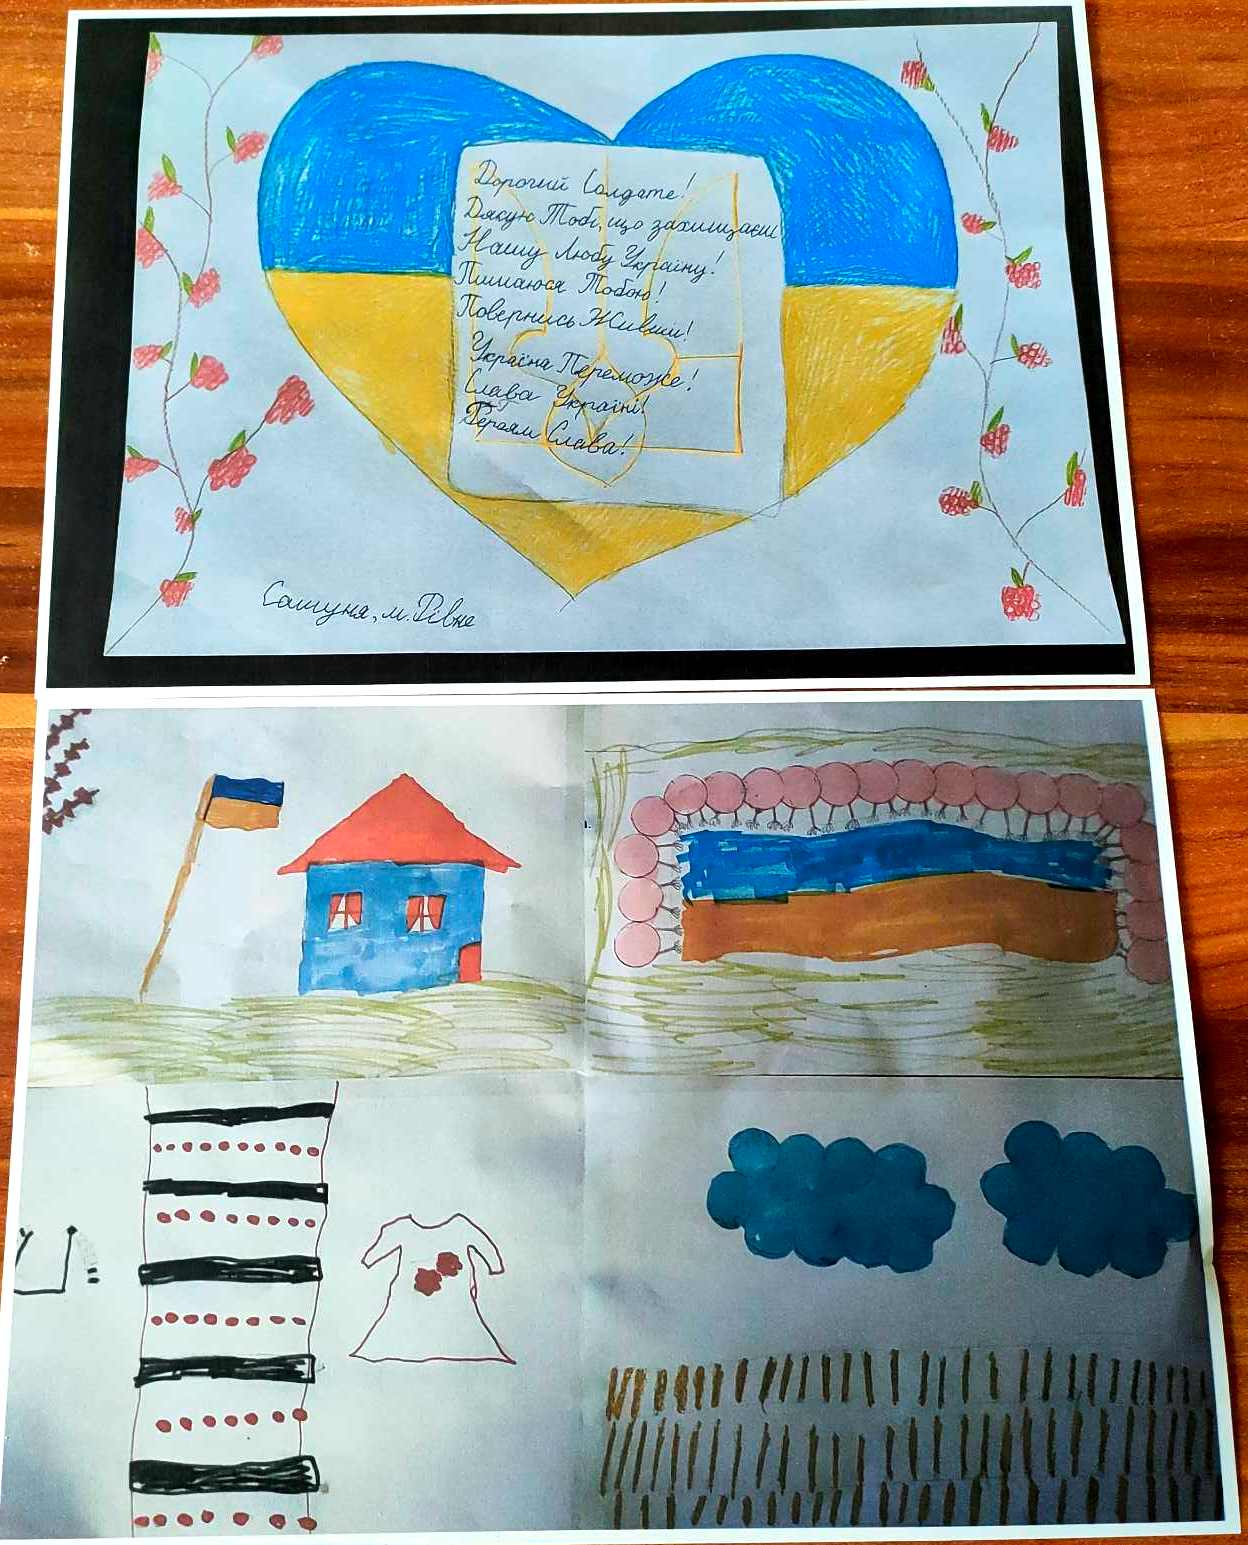 Дорогий Солдате!
Дякую Тобі, що захищаєш
Нашу Любу Україну!
Пишаюся Тобою!
Повернись Живим!
Україна Переможе!
Слава Україні!
Героям Слава!
Сашуня, м. Рівне